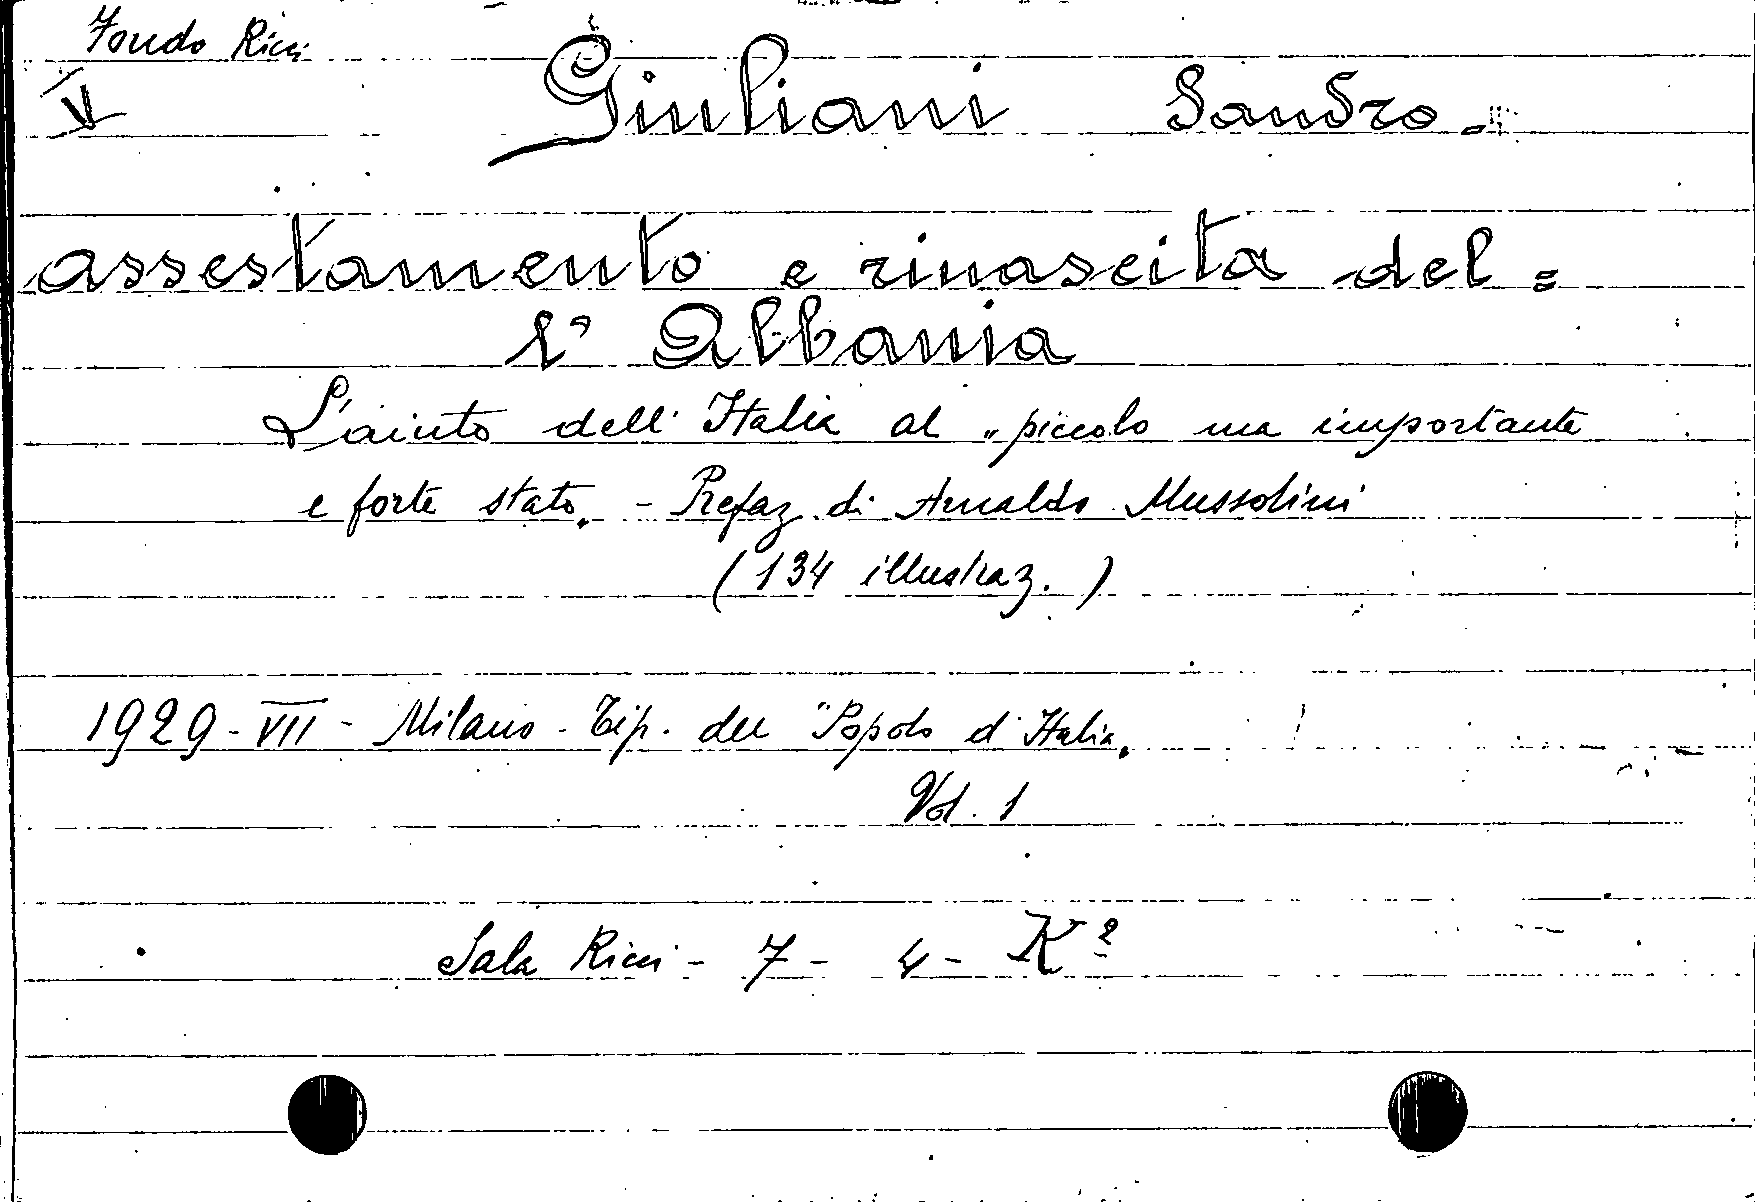 Fondo Ricci
V
Giuliani Sandro.
assestamento e rinascita del=
l'Albania
L'aiuto dell'Italia al „piccolo ma importante
e forte stato„ - Prefaz. di Arnaldo Mussolini
(134 illustraz.)
1929-VII - Milano - Tip. del "Popolo d'Italia„
Vol. 1
Sala Ricci - 7 - 4 - K²